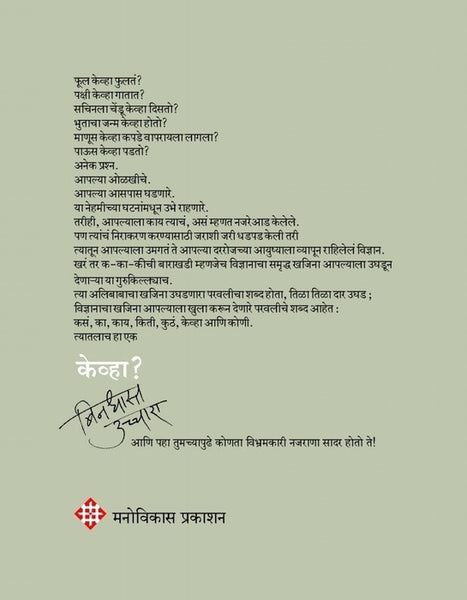 फूल केव्हा फुलतं?
पक्षी केव्हा गातात?
सचिनला चेंडू केव्हा दिसतो?
भुताचा जन्म केव्हा होतो?
माणूस केव्हा कपडे वापरायला लागला?
पाऊस केव्हा पडतो?
अनेक प्रश्न.
आपल्या ओळखीचे.
आपल्या आसपास घडणारे.
या नेहमीच्या घटनांमधून उभे राहणारे.
तरीही, आपल्याला काय त्याचं, असं म्हणत नजरेआड केलेले.
पण त्यांचं निराकरण करण्यासाठी जराशी जरी धडपड केली तरी
त्यातून आपल्याला उमगतं ते आपल्या दररोजच्या आयुष्याला व्यापून राहिलेलं विज्ञान.
खरं तर क-का-कीची बाराखडी म्हणजेच विज्ञानाचा समृद्ध खजिना आपल्याला उघडून
देणाऱ्या या गुरुकिल्ल्याच.
त्या अलिबाबाचा खजिना उघडणारा परवलीचा शब्द होता, तिळा तिळा दार उघड ;
विज्ञानाचा खजिना आपल्याला खुला करून देणारे परवलीचे शब्द आहेत :
कसं, का, काय, किती, कुठं, केव्हा आणि कोणी.
त्यातलाच हा एक
केव्हा?
बिनधास्त
उच्चारा
आणि पहा तुमच्यापुढे कोणता विभ्रमकारी नजराणा सादर होतो ते!
मनोविकास प्रकाशन